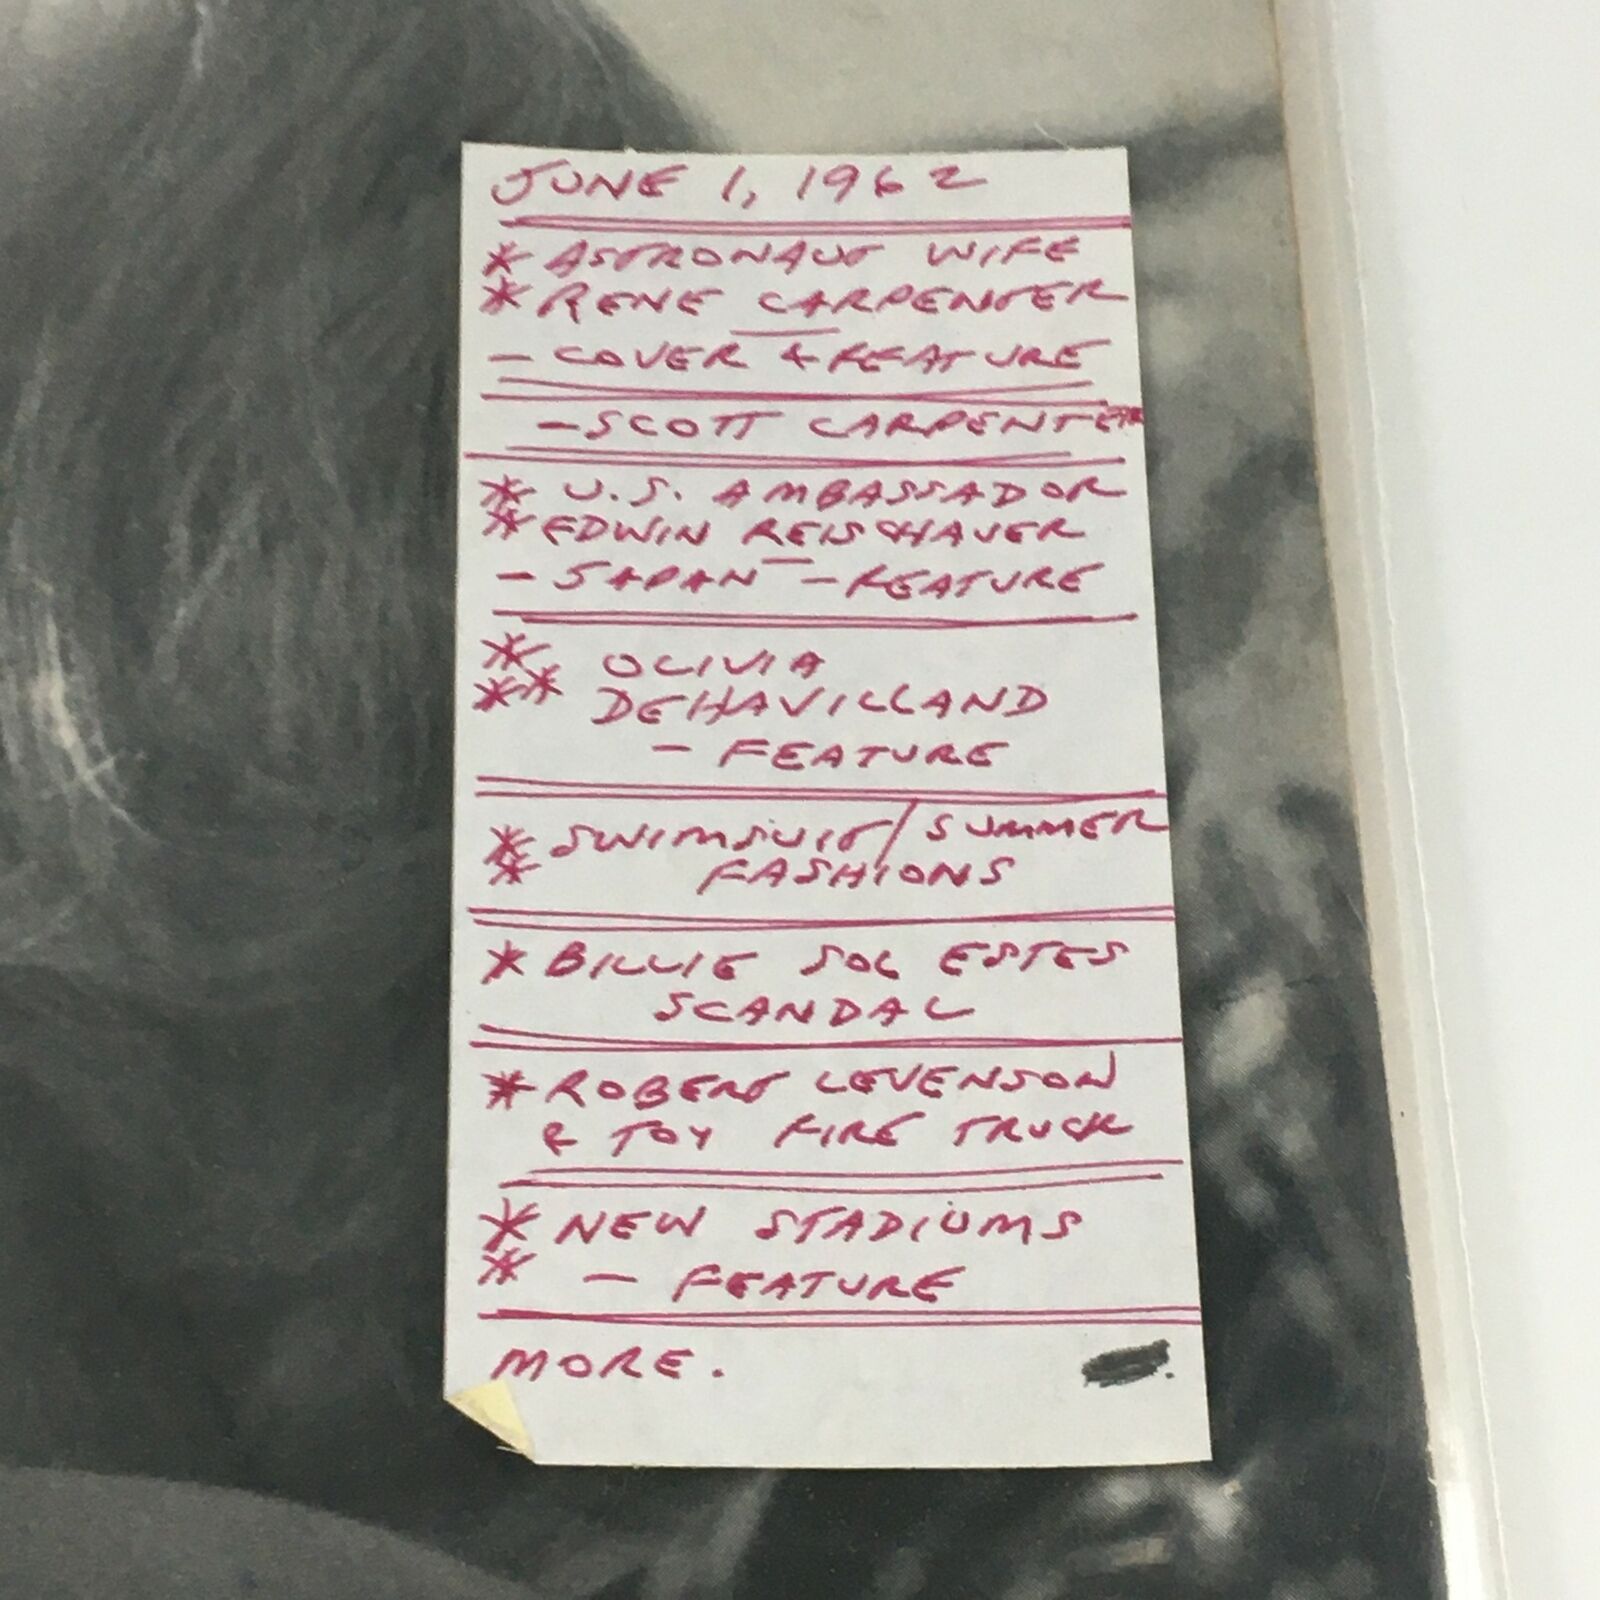 JUNE 1, 1962
* ASTRONAUT WIFE
* RENE CARPENTER
- COVER & FEATURE
- SCOTT CARPENTER
* U.S. AMBASSADOR
* EDWIN REISCHAUER
- JAPAN - FEATURE
* OLIVIA
** DEHAVILLAND
- FEATURE
* SWIMSUIT/SUMMER
* FASHIONS
* BILLIE SOL ESTES
SCANDAL
* ROBERT LEVENSON
& TOY FIRE TRUCK
* NEW STADIUMS
* - FEATURE
MORE.